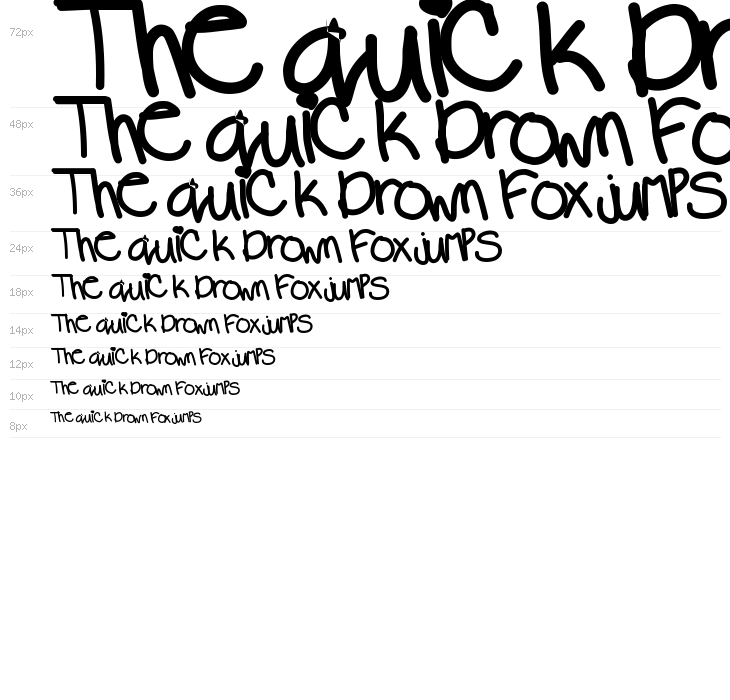 72px The quick br
48px The quick brown Fo
36px The quick brown Fox jumps
24px The quick brown Fox jumps
18px The quick brown Fox jumps
14px The quick brown Fox jumps
12px The quick brown Fox jumps
10px The quick brown Fox jumps
8px The quick brown Fox jumps